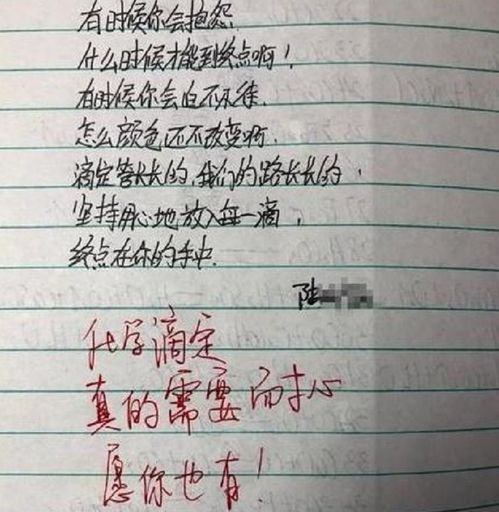 有时候你会抱怨
什么时候才能到终点啊！
有时候你会迫不及待.
怎么颜色还不改变啊.
滴定管长长的,我们的路长长的,
坚持用心地放入每一滴,
终点在你的手中.
陆
化学滴定
真的需要耐心
愿你也有！